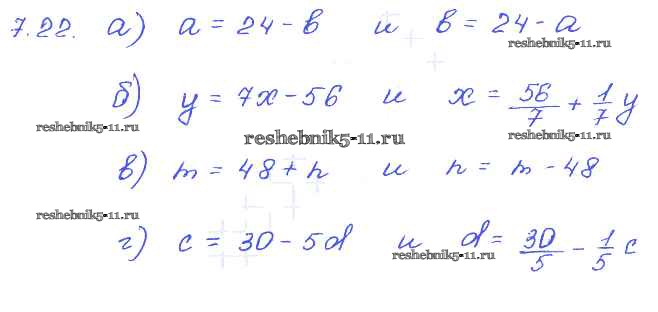 7.22. а) a = 24 - b и b = 24 - a
reshebnik5-11.ru
б) y = 7x - 56 и x = 56/7 + 1/7 y
reshebnik5-11.ru
reshebnik5-11.ru
reshebnik5-11.ru
в) m = 48 + n и n = m - 48
reshebnik5-11.ru
г) c = 30 - 5d и d = 30/5 - 1/5 c
reshebnik5-11.ru